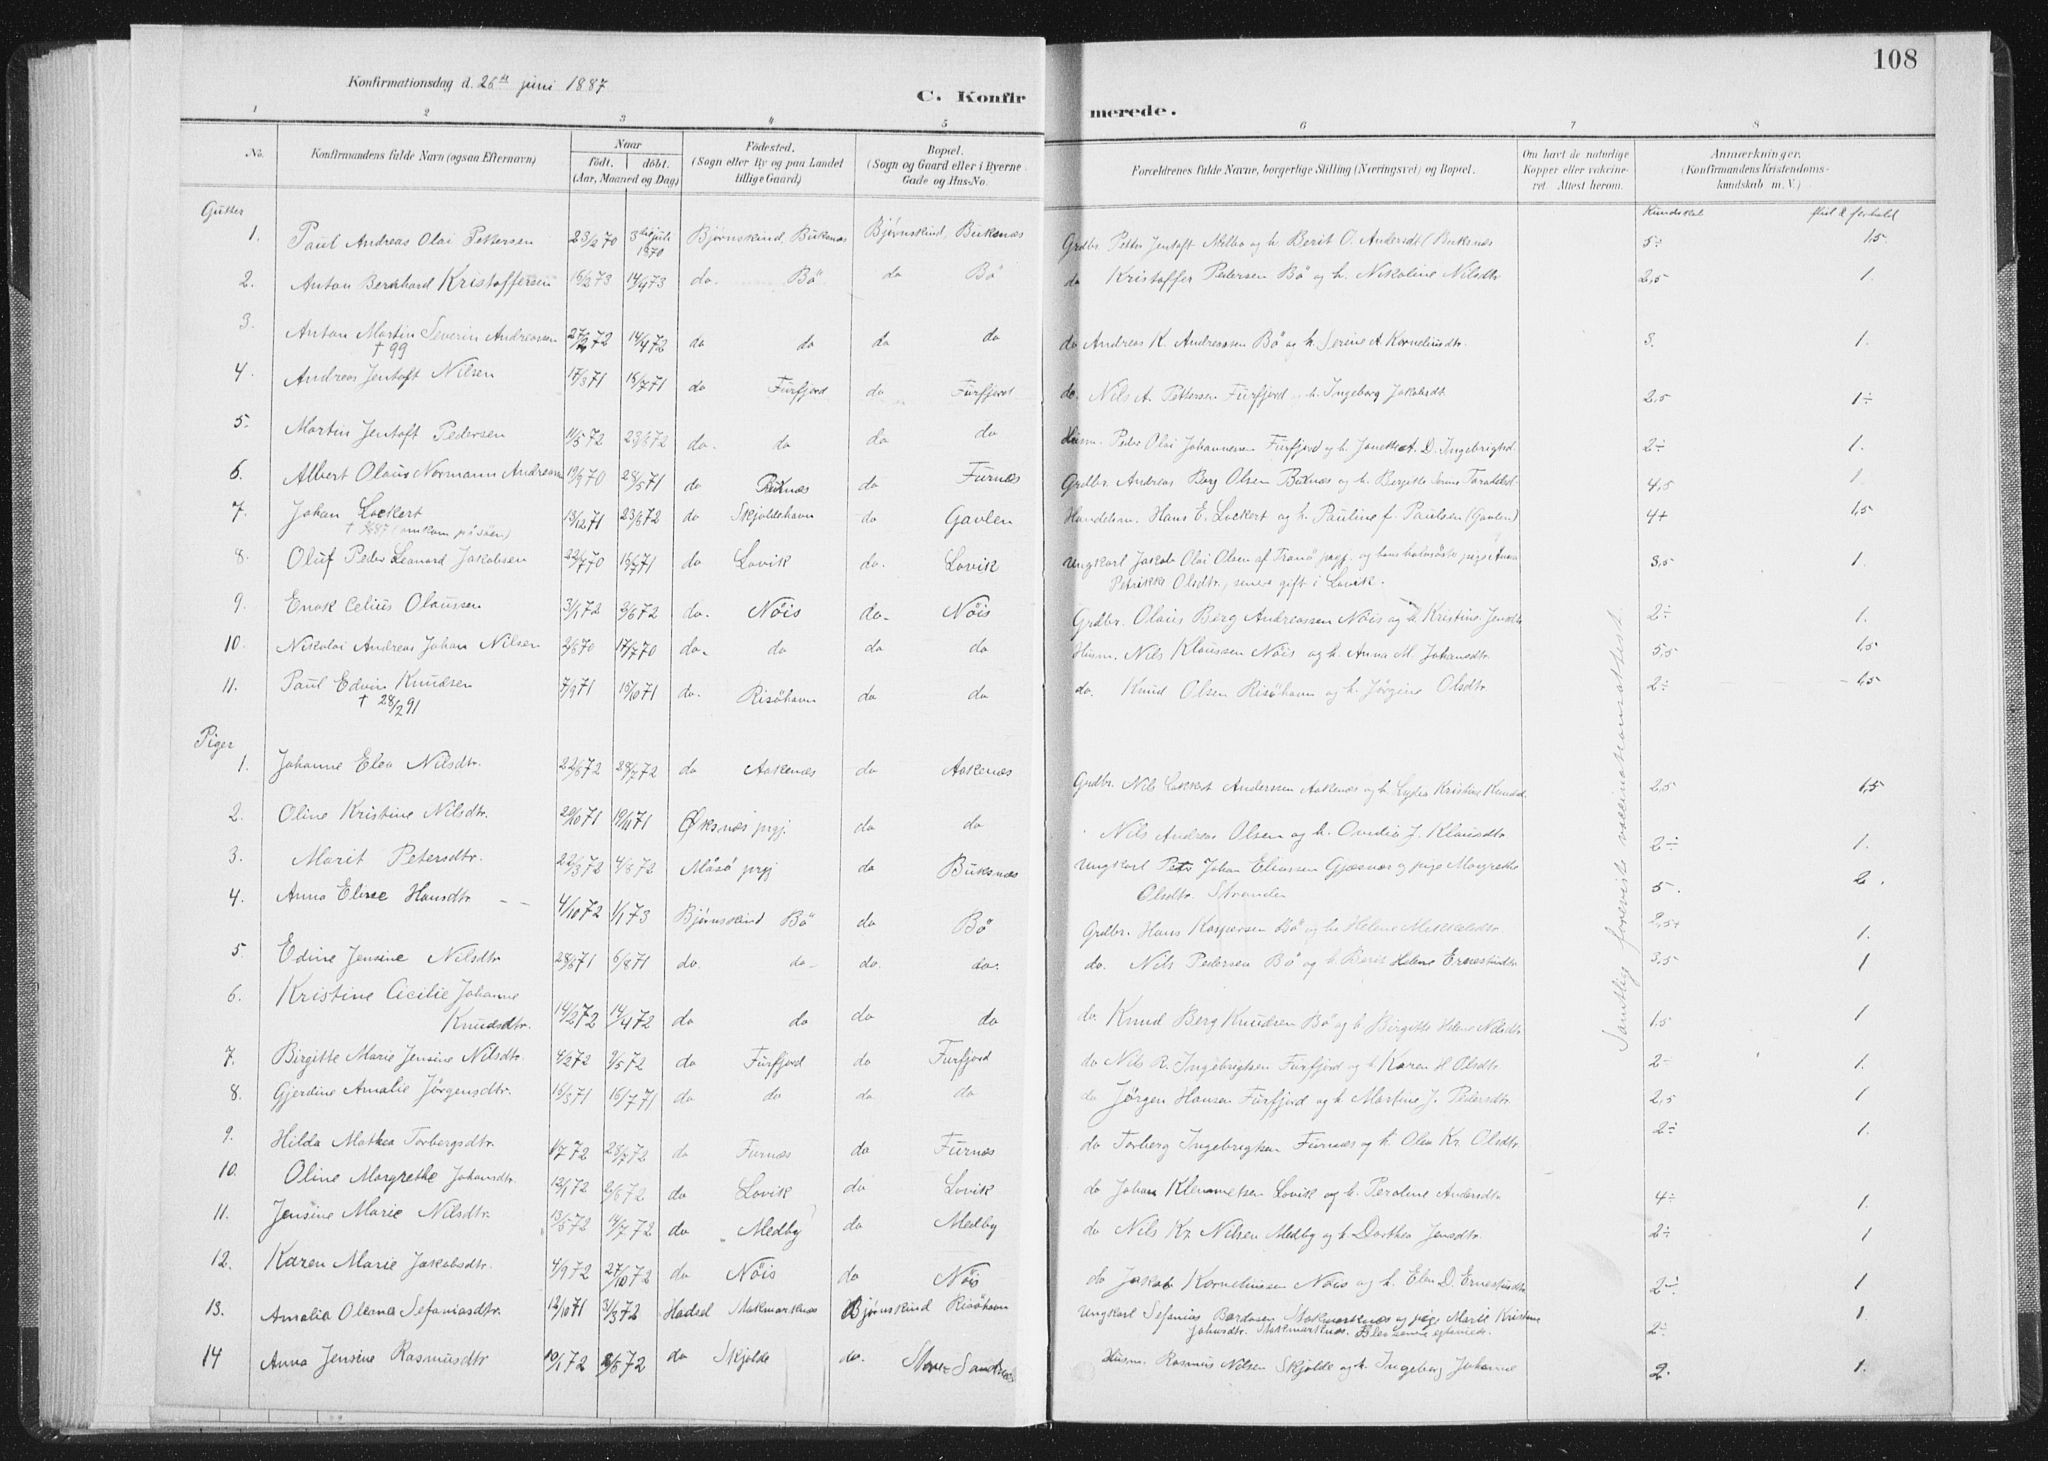 108
Konfirmationsdag d. 26de juni 1887
C. Konfirmerede.
1 2 3 4 5 6 7 8
No. Konfirmandens fulde Navn (ogsaa Efternavn) Naar født. døbt. (Aar, Maaned og Dag) Fødested. (Sogn eller By og paa Landet tillige Gaard) Bopæl. (Sogn og Gaard eller i Byerne Gade og Hus-No. Forældrenes fulde Navne, borgerlige Stilling (Næringsvei) og Bopæl. Om havt de naturlige Kopper eller vaccineret. Attest herom. Anmærkninger. (Konfirmandens Kristendomskundskab m. V.)
Gutter Kundskab flid & forhold
1. Paul Andreas Olai Pettersen 23/2 70 3die juli 1870 Bjørnskind, Buksnæs Bjørnskind, Buksnæs Grdbr. Petter Jentoft Melbo og h. Berit O. Andersdt (Buksnæs 5÷ 1,5
2. Anton Bernhard Kristoffersen 16/2 73 14/4 73 do. Bö do Bö do Kristoffer Pedersen Bö og h. Nikoline Nilsdtr 2,5 1.
3. Anton Martin Severin Andreassen 27/2 72 14/4 72 do do do do do Andreas K. Andreassen Bö og h. Serine A Korneliusdtr. 3. 1.
† 99
4. Andreas Jentoft Nilsen 17/3 71 16/7 71 do Furfjord do Furfjord do. Nils A. Pettersen Furfjord og h. Ingeborg Jakobsdt. 2,5 1÷
5. Martin Jentoft Pedersen 11/5 72 23/6 72 do. do do do Husm. Peder Olai Johannessen Furfjord og h. Janette A. D. Ingebrigtsd. 2÷ 1.
6. Albert Olaus Normann Andreasen 19/9 70 28/5 71 do Buknæs do Furnæs Grdbr. Andreas Berg Olsen Buknæs og h. Bergitte 4,5 1
7. Johan Lockert 13/12 71 23/6 72 do Skjoldehavn do Gavlen Handelsm. Hans E. Lockert og h. Pauline f. Paulsen (Gavlen) 4+ 1,5
† 87 (omkom på søen)
8. Oluf Peder Leonard Jakobsen 22/7 70 15/7 71 do Lovik do. Lovik Ungkarl Jakob Olai Olsen af Tranö prgj. og pige Anna 3,5 1.
Petrikke Olsdtr., senere gift i Lovik.
9. Enok Celius Olaussen 3/1 72 2/6 72 do. Nöis do. Nöis Grdbr. Olaus Berg Andreassen Nöis og h. Kristine Jensdtr 2÷ 1.
10. Nikolai Andreas Johan Nilsen 2/6 70 17/7 70 do. do do do Husm. Nils Klaussen Nöis og h. Anna M. Johansdtr. 5,5 1,5
11. Paul Edvin Knudsen 7/9 71 15/10 71 do. Risöhavn do do do. Knud Olsen Risöhavn og h. Jörgine Olsdtr 2÷ 1,5
† 28/2 91
Samtlig foreviste vaccinationsattest.
Piger
1. Johanne Elea Nilsdtr. 22/6 72 28/7 72 do Aaknæs do Aaknæs Grdbr. Nils Lockert Anderssen Aaknæs og h. Lydia Kristine Knudsd. 2,5 1,5
2. Oline Kristine Nilsdtr. 20/10 71 19/11 71 Øksnæs prgj. do do Nils Andreas Olsen og h. Ovidia J. Klausdtr 2÷ 1.
3. Marit Petersdtr. 22/3 72 4/8 72 Måsö prgj do Buksnæs Ungkarl Peter Johan Eliassen Gjæsnæs og pige Margrethe 5. 2.
Olsdtr. Stranden
4. Anna Elisae Hansdtr 4/10 72 1/1 73 Bjørnskind Bö do Bö Grdbr. Hans Kaspersen Bö og h. Helene Mikkelsdtr 2,5+ 1.
5. Edine Jensine Nilsdtr 28/6 71 6/8 71 do. do do. do. do. Nils Pedersen Bö og h. Berit Helene Ernestusdtr 3,5 1
6. Kristine Cicilie Johanne 14/2 72 14/4 72 do do do do do. Knud Berg Knudsen Bö og h. Birgitte Helene Nilsdtr 1,5 1
Knudsdtr.
7. Birgitte Marie Jensine Nilsdtr. 4/2 72 9/5 72 do Furfjord do Furfjord do Nils R. Ingebrigtsen Furfjord og h Karen H Olsdtr 2÷ 1.
8. Gjerdine Amalie Jørgensdtr. 16/3 71 16/7 71 do do do do do Jörgen Hansen Furfjord og h. Martine J. Pedersdtr. 2,5 1
9. Hilda Mathea Torbergsdtr. 1/7 72 28/7 72 do Furnæs do Furnæs do Torberg Ingebrigtsen Furnæs og h. Olea Kr. Olsdtr. 2÷ 1.
10. Oline Margrethe Johansdtr. 12/1 72 2/6 72 do Lovik do Lovik do Johan Klemmetsen Lovik og h. Peroline Andersdtr 4÷ 1.
11. Jensine Marie Nilsdtr. 13/6 72 14/7 72 do Medby do Medby do Nils Kr. Nilsen Medby og h Dorthea Jensdtr. 2÷ 1
12. Karen Marie Jakobsdtr. 4/9 72 27/10 72 do Nöis do Nöis do Jakob Korneliussen Nöis og h. Elen D. Ernestusdtr 2÷ 1
13. Amalia Olerna Sefaniasdtr. 12/10 71 31/3 72 Hadsel Stokmarknæs Bjørnskind Risöhavn Ungkarl Sefanias Bardosen Stokmarknæs og pige Marie Kristine 2÷ 1
Johnsdtr. Stokmarknæs. Blev senere egtaviede.
14 Anna Jensine Rasmusdtr 10/1 72 2/6 72 do Skjolde do. Store Sandnæs Husm. Rasmus Nilsen Skjolde og h. Ingeborg Johanne 2. 1.